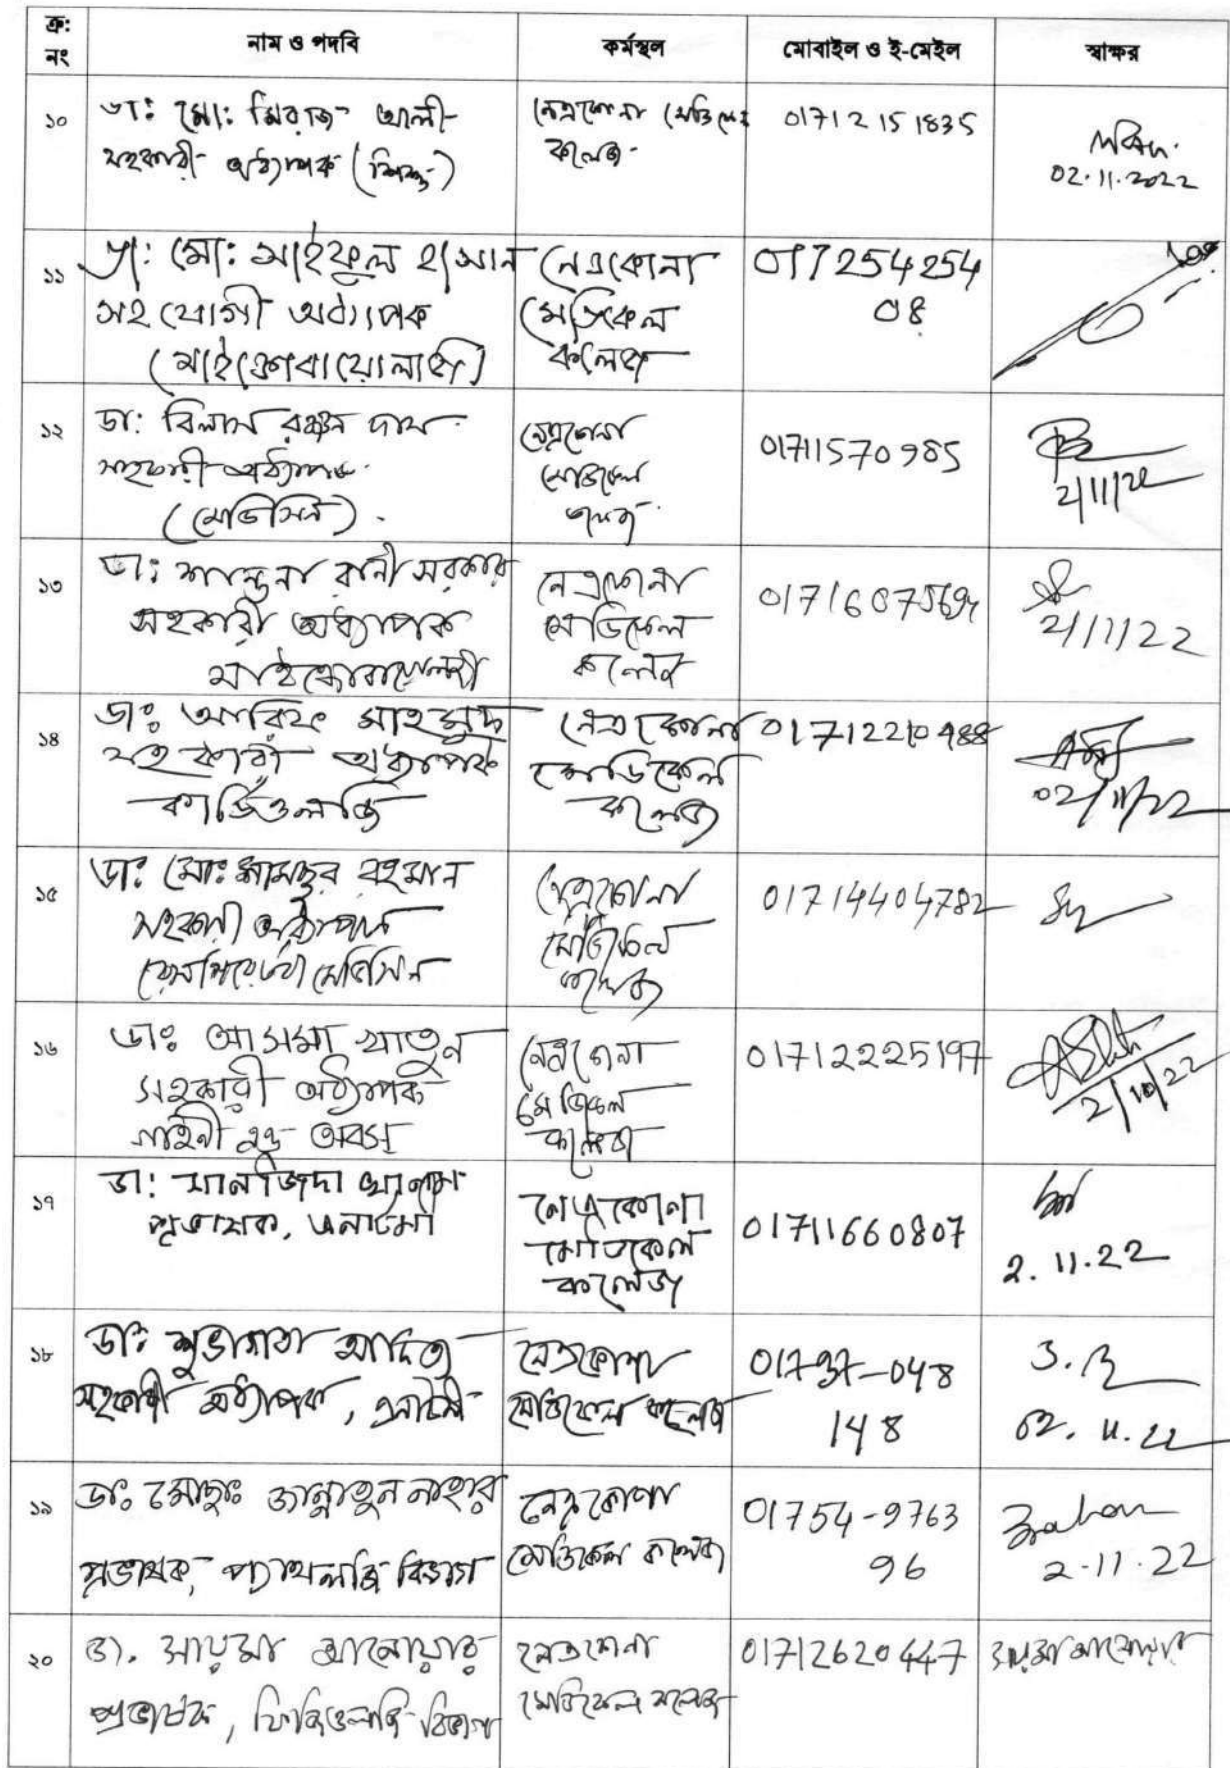 ক্র: নং	নাম ও পদবি	কর্মস্থল	মোবাইল ও ই-মেইল	স্বাক্ষর
১০
ডা: মো: মিরাজ আলী
সহকারী অধ্যাপক (শিশু)
নেত্রকোনা মেডিকেল
কলেজ
01712151835
02.11.2022
১১
ডা: মো: সাইফুল হাসান
সহযোগী অধ্যাপক
(মাইক্রোবায়োলজি)
নেত্রকোনা
মেডিকেল
কলেজ
017254254
08
১২
ডা: বিলাস রঞ্জন দাস
সহকারী অধ্যাপক
(মেডিসিন).
নেত্রকোনা
মেডিকেল
কলেজ
01711570985
2/11/22
১৩
ডা: শান্তনা রানী সরকার
সহকারী অধ্যাপক
মাইক্রোবায়োলজী
নেত্রকোনা
মেডিকেল
কলেজ
2/11/22
১৪
ডাঃ আরিফ মাহমুদ
সহকারী অধ্যাপক
কার্ডিওলজি
নেত্রকোনা
মেডিকেল
কলেজ
01712210988
02/11/22
১৫
ডাঃ মোঃ শামছুর রহমান
সহকারী অধ্যাপক
রেসপিরেটরী মেডিসিন
নেত্রকোনা
মেডিকেল
কলেজ
01714404782
১৬
ডাঃ আসমা খাতুন
সহকারী অধ্যাপক
গাইনী এন্ড অবস্
নেত্রকোনা
মেডিকেল
কলেজ
01712225197
2/10/22
১৭
ডা: সানজিদা খানম
প্রভাষক, এনাটমী
নেত্রকোনা
মেডিকেল
কলেজ
01711660807
2.11.22
১৮
ডাঃ শুভাগতা আদিত্য
সহকারী অধ্যাপক, এনাটমী
নেত্রকোণা
মেডিকেল কলেজ
01737-048
148
02.11.22
১৯
ডাঃ মোছাঃ জান্নাতুন নাহার
প্রভাষক, প্যাথলজি বিভাগ
নেত্রকোণা
মেডিকেল কলেজ
01754-9763
96
Nahar
2.11.22
২০
ডা. সায়মা আনোয়ার
প্রভাষক, ফিজিওলজি বিভাগ
নেত্রকোনা
মেডিকেল কলেজ
01712620447
সায়মা আনোয়ার